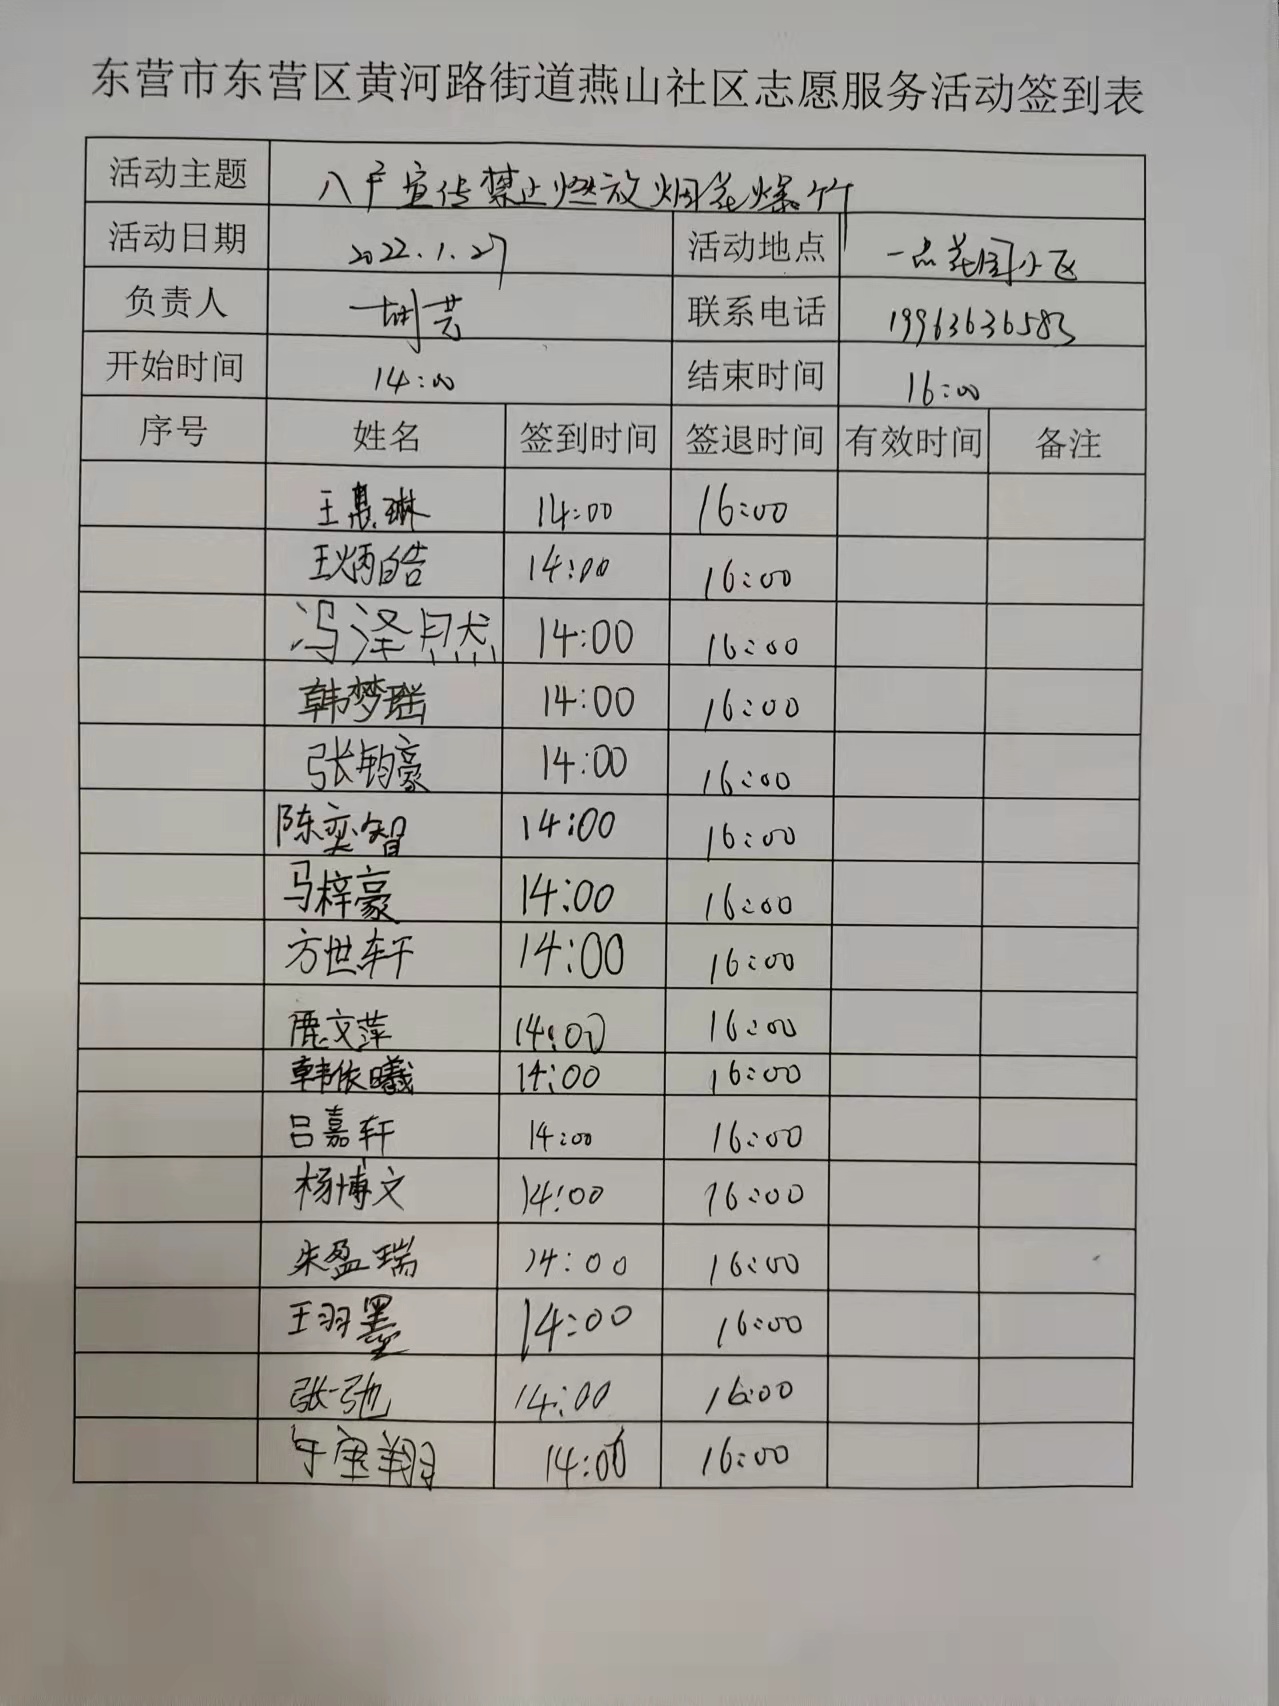 东营市东营区黄河路街道燕山社区志愿服务活动签到表
活动主题 八户宣传禁止燃放烟花爆竹
活动日期 2022.1.27 活动地点 一品花园小区
负责人 胡芸 联系电话 19963636583
开始时间 14:00 结束时间 16:00
序号 姓名 签到时间 签退时间 有效时间 备注
王惠琳 14:00 16:00
王炳皓 14:00 16:00
冯泽然 14:00 16:00
韩梦瑶 14:00 16:00
张钧豪 14:00 16:00
陈奕智 14:00 16:00
马梓豪 14:00 16:00
方世轩 14:00 16:00
鹿文萍 14:00 16:00
韩依曦 14:00 16:00
吕嘉轩 14:00 16:00
杨博文 14:00 16:00
朱盈瑞 14:00 16:00
王羽墨 14:00 16:00
张一弛 14:00 16:00
14:00 16:00